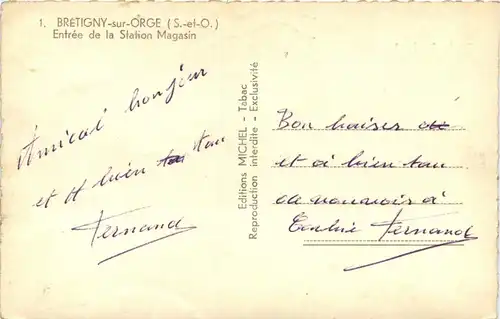 1. BRÉTIGNY-sur-ORGE (S.-et-O.)
Entrée de la Station Magasin
Amical bonjour
et A bien tau
Fernand
Editions MICHEL - Tabac
Reproduction interdite - Exclusivité
Bon baiser
et a bien tau
Fernand